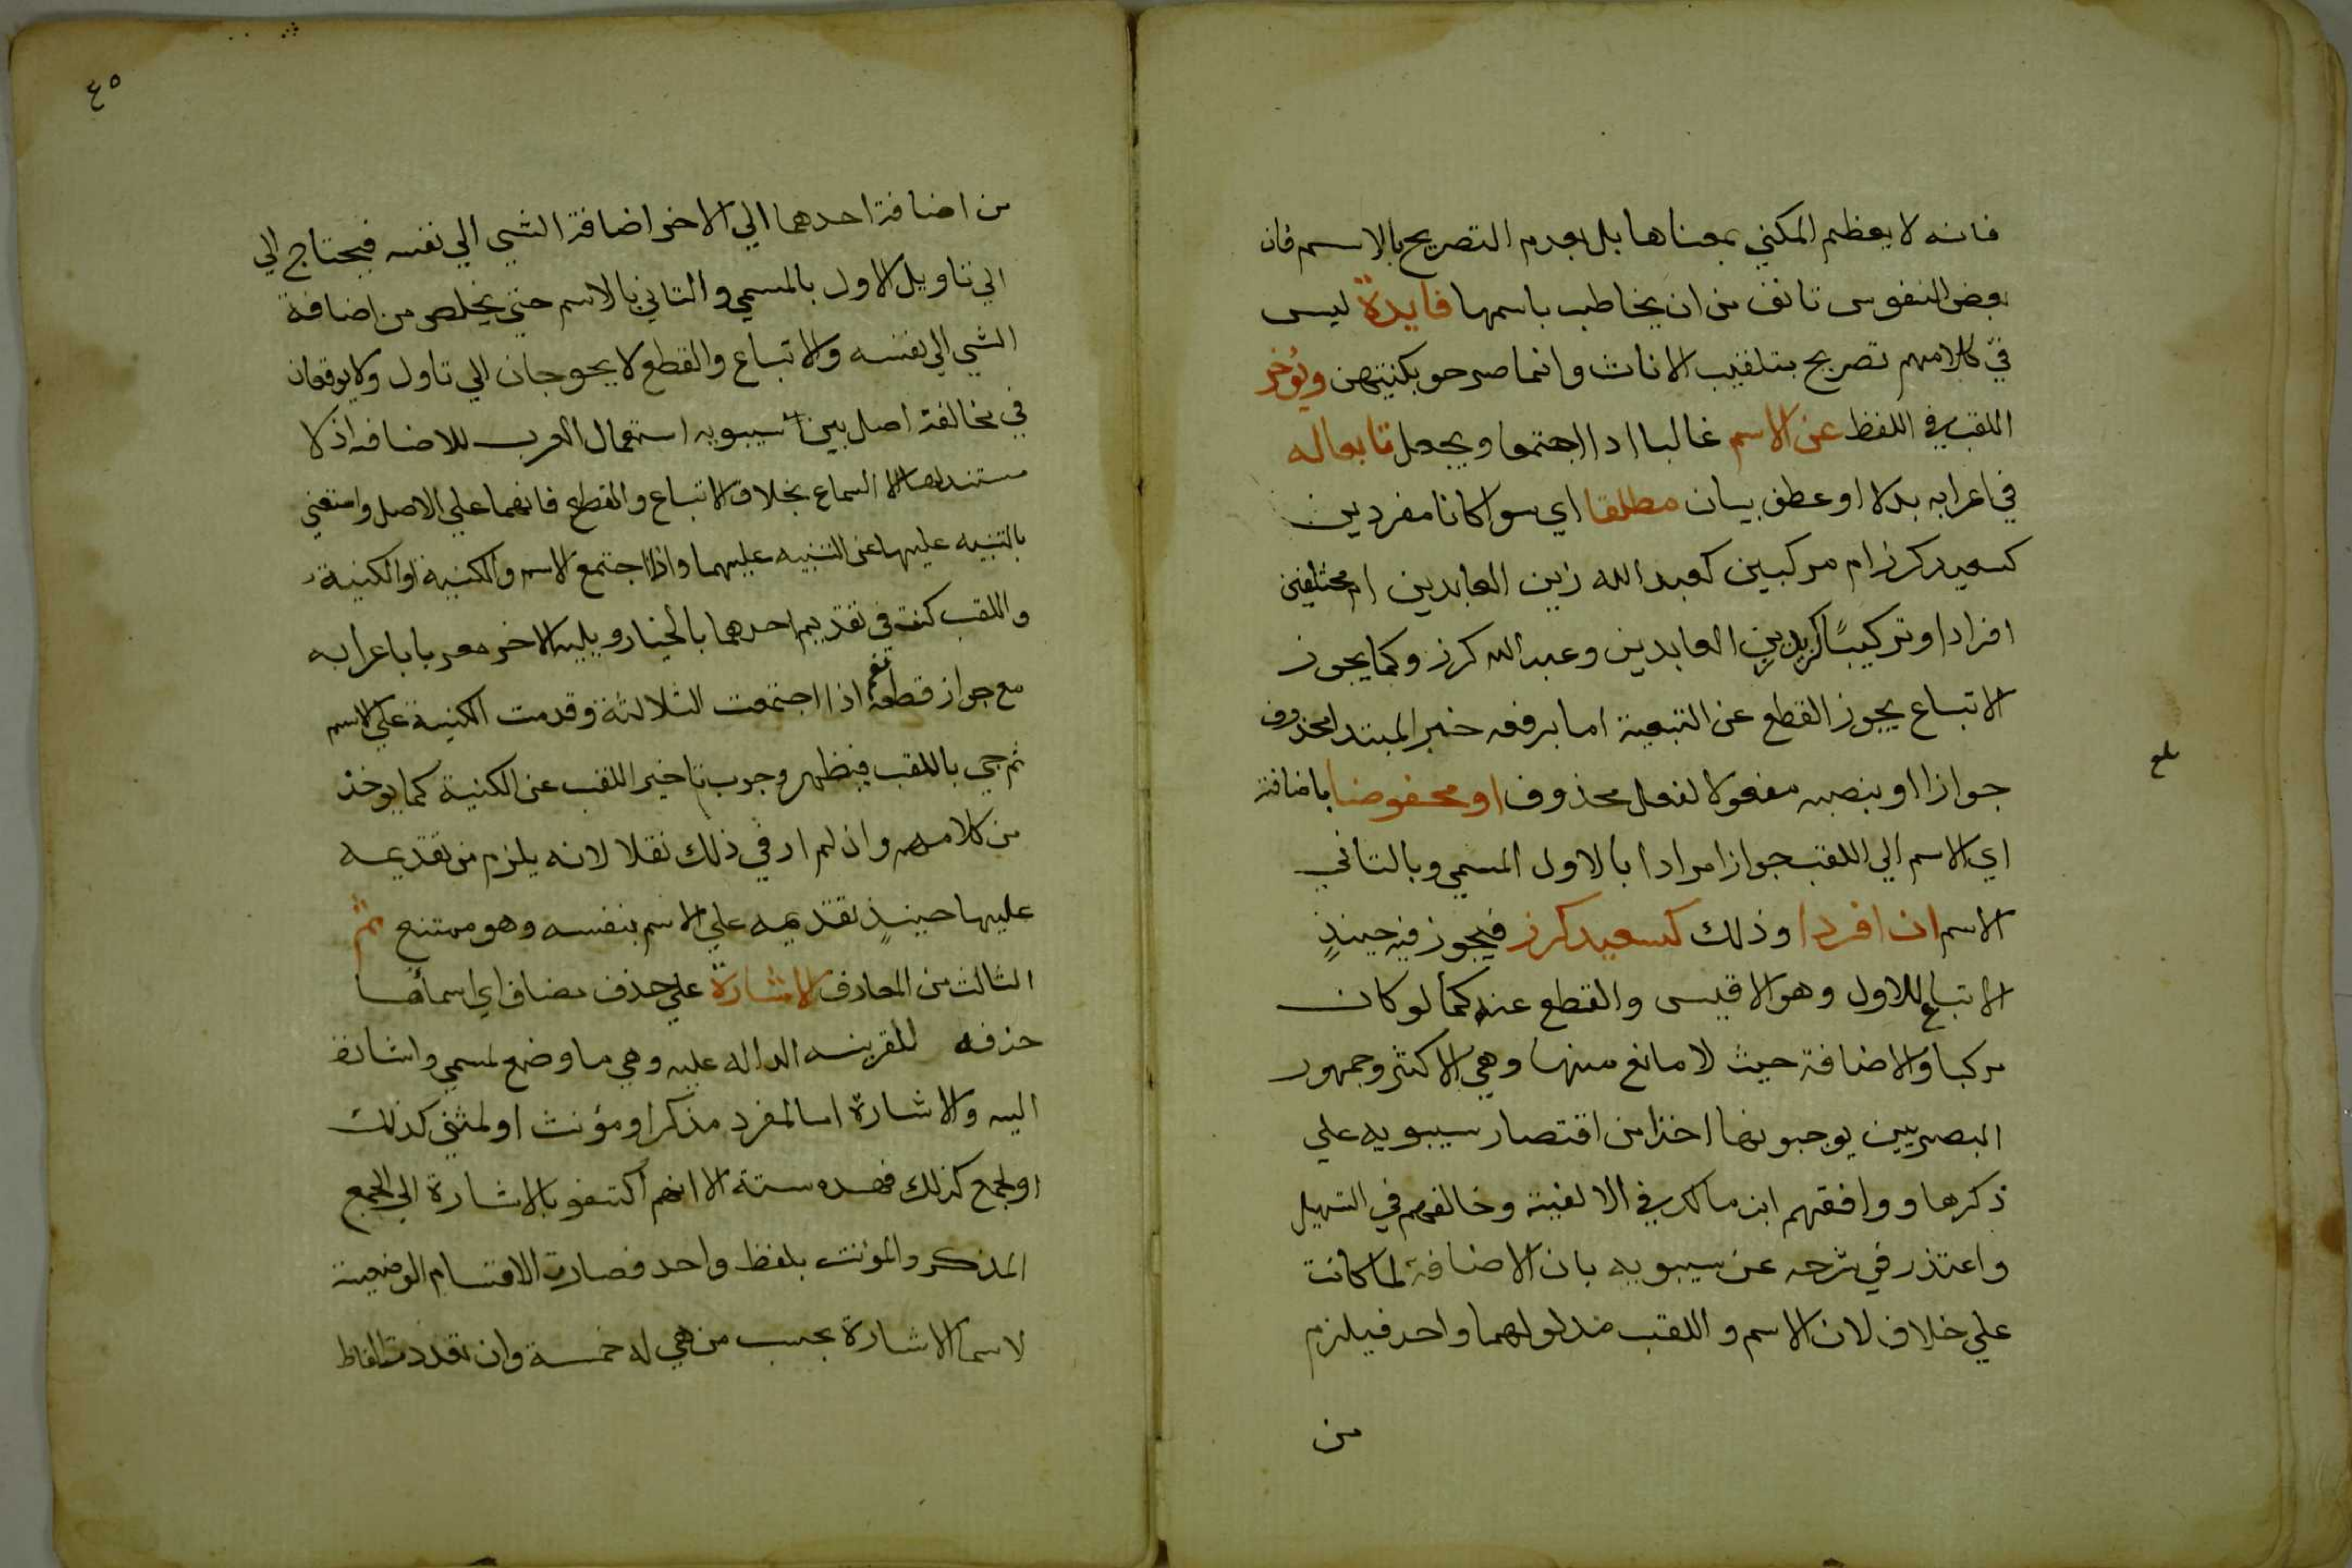 فانه لا يعظم المكني بمعناها بل بعدم التصريح بالاسم فان
بعض النفوس تانف من ان يخاطب باسمها فايدة ليس
في كلامهم تصريح بتلقيب الاناث وانما صرحو بكنيتهن ويؤخر
اللقب في اللفظ عن الاسم غالبا اذا اجتمعا ويجعل تابعا له
في اعرابه بدلا او عطف بيان مطلقا اي سوا كانا مفردين
كسعيد كرز ام مركبين كعبد الله زين العابدين ام مختلفين
افرادا وتركيبا كزيد زين العابدين وعبد الله كرز وكما يجوز
الاتباع يجوز القطع عن التبعية اما برفعه خبر المبتدا محذوف
جوازا او بنصبه مفعولا لفعل محذوف او مخفوضا باضافة
اي الاسم الي اللقب جوازا مرادا بالاول المسمي وبالتاني
الاسم ان افردا وذلك كسعيد كرز فيجوز فيه حينذٍ
الاتباع للاول وهو الاقيس والقطع عنه كما لو كان
مركبا والاضافة حيث لا مانع منها وهي الاكثر وجمهور
البصريين يوجبونها اخذا من اقتصار سيبويه علي
ذكرها ووافقهم ابن مالك في الالفية وخالفهم في التسهيل
واعتذر في شرحه عن سيبويه بان الاضافة لما كانت
علي خلاف لان الاسم واللقب مدلولهما واحد فيلزم
من
بلغ
٤٥
من اضافة احدهما الي الاخر اضافة الشي الي نفسه فيحتاج الي
الي تاويل الاول بالمسمي والتاني بالاسم حتي يخلص من اضافة
الشي الي نفسه والاتباع والقطع لا يحوجان الي تاول ولا يوقعان
في مخالفة اصل بين سيبويه استعمال العرب للاضافه اذ لا
مستند لها الا السماع بخلاف الاتباع والقطع فانهما علي الاصل واستغني
بالتنبيه عليها عن التنبيه عليهما واذا اجتمع الاسم والكنية او الكنية
واللقب كنت في تقديم احدهما بالخيار ويليه الاخر معربا باعرابه
مع جواز قطعه نعم اذا اجتمعت الثلاثة وقدمت الكنية علي الاسم
ثم جي باللقب فيظهر وجوب تاخير اللقب عن الكنية كما يوخذ
من كلامهم وان لم ار في ذلك نقلا لانه يلزم من تقديمه
عليها حينذٍ تقديمه علي الاسم بنفسه وهو ممتنع ثم
الثالث من المعارف الاشارة علي حذف مضاف اي اسماها
حذفه للقرينه الداله عليه وهي ما وضع لمسمي واشارة
اليه والاشارة اما لمفرد مذكر او مؤنث او لمثني كذلك
او لجمع كذلك فهده ستة الا انهم اكتفو بالاشارة الي الجمع
المذكر والمؤنث بلفظ واحد فصارت الاقسام الوضعية
لاسما الاشارة بحسب من هي له خمسة وان تعددت الفاظ